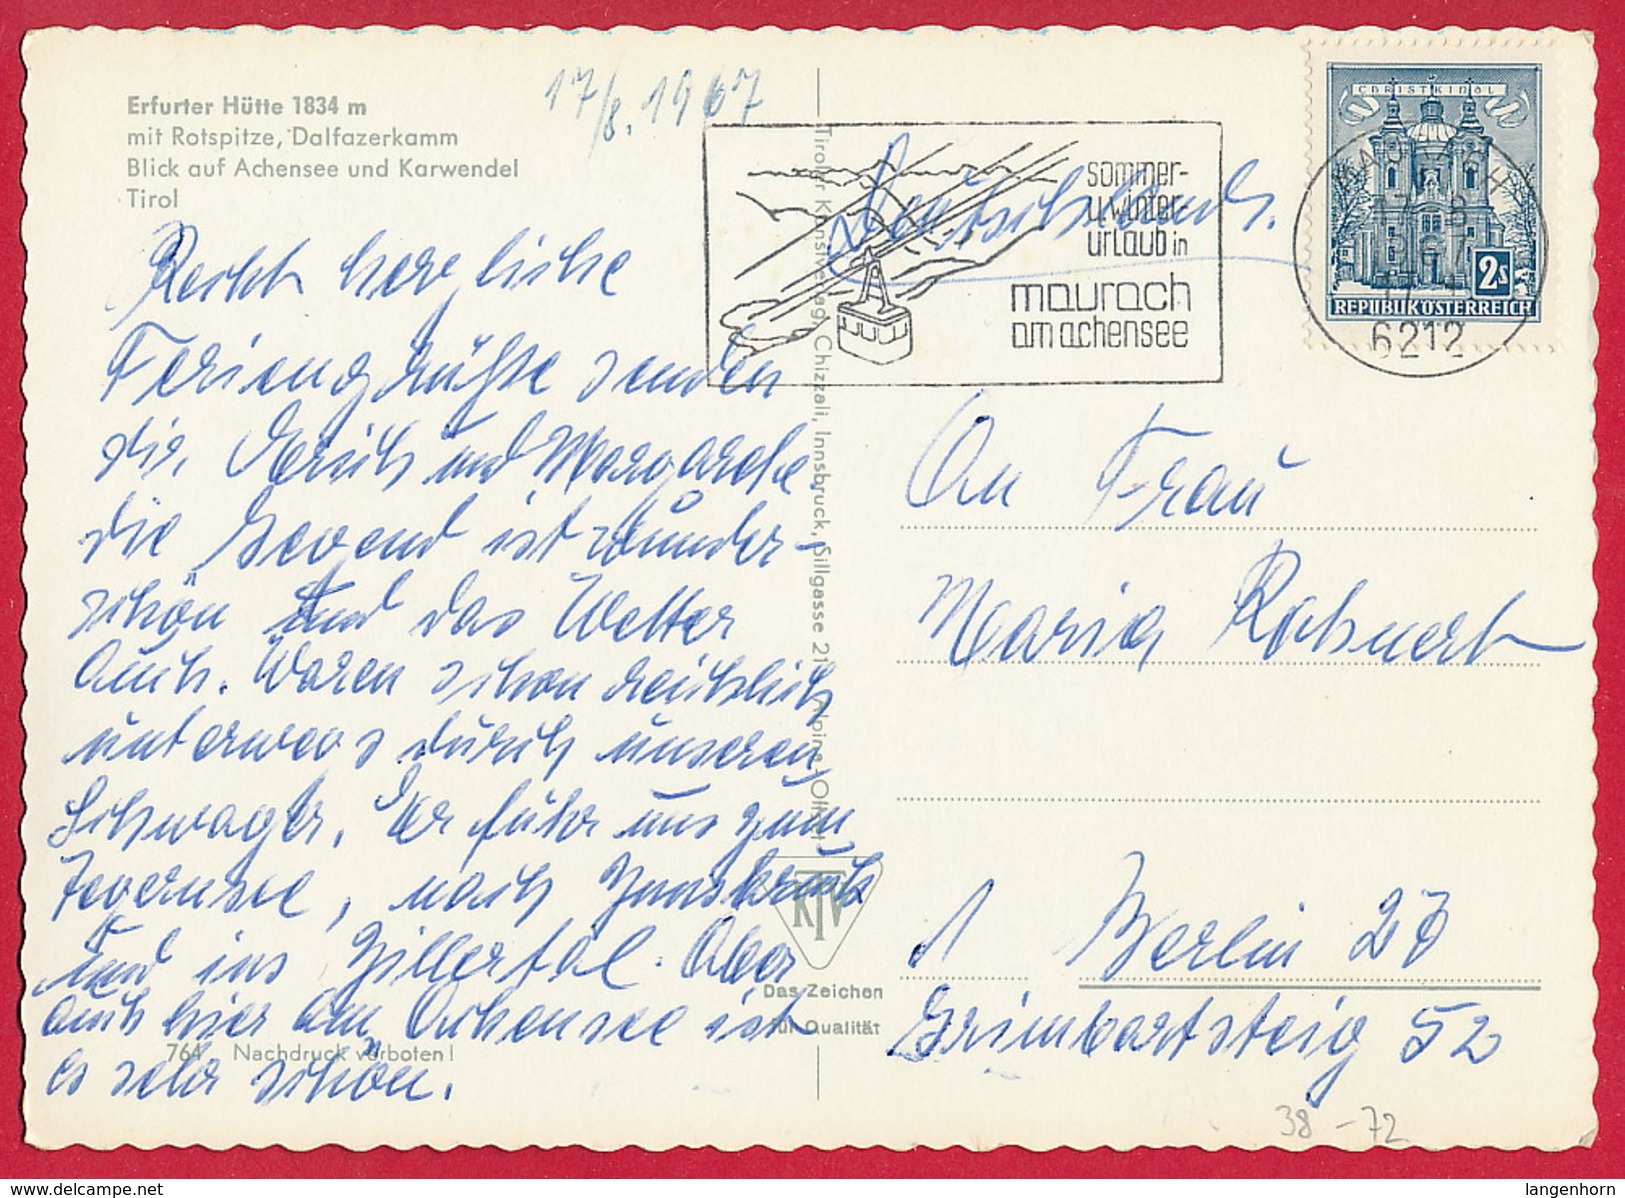 Erfurter Hütte 1834 m
mit Rotspitze, Dalfazerkamm
Blick auf Achensee und Karwendel
Tirol
17/8. 1967
Recht herzliche
Feriengrüße senden
dir, Erich und Margarete.
Die Gegend ist wunder-
schön und das Wetter
auch. Waren schon reichlich
unterwegs durch unseren
Schwager. Er fuhr uns zum
Tegernsee, nach Innsbruck
und ins Zillertal. Aber
auch hier am Achensee ist
es sehr schön.
764 Nachdruck verboten!
Tiroler Kunstverlag Chizzali, Innsbruck, Sillgasse 21
KTV
Das Zeichen
für Qualität
Deutschland.
sommer-
u.winter-
urlaub in
maurach
am achensee
CHRISTKINDL
2s
REPUBLIK ÖSTERREICH
MAURACH
17. 8. 67
6212
An Frau
Maria
1 Berlin 28
Grimbartsteig 52
38-72
delcampe.net
langenhorn